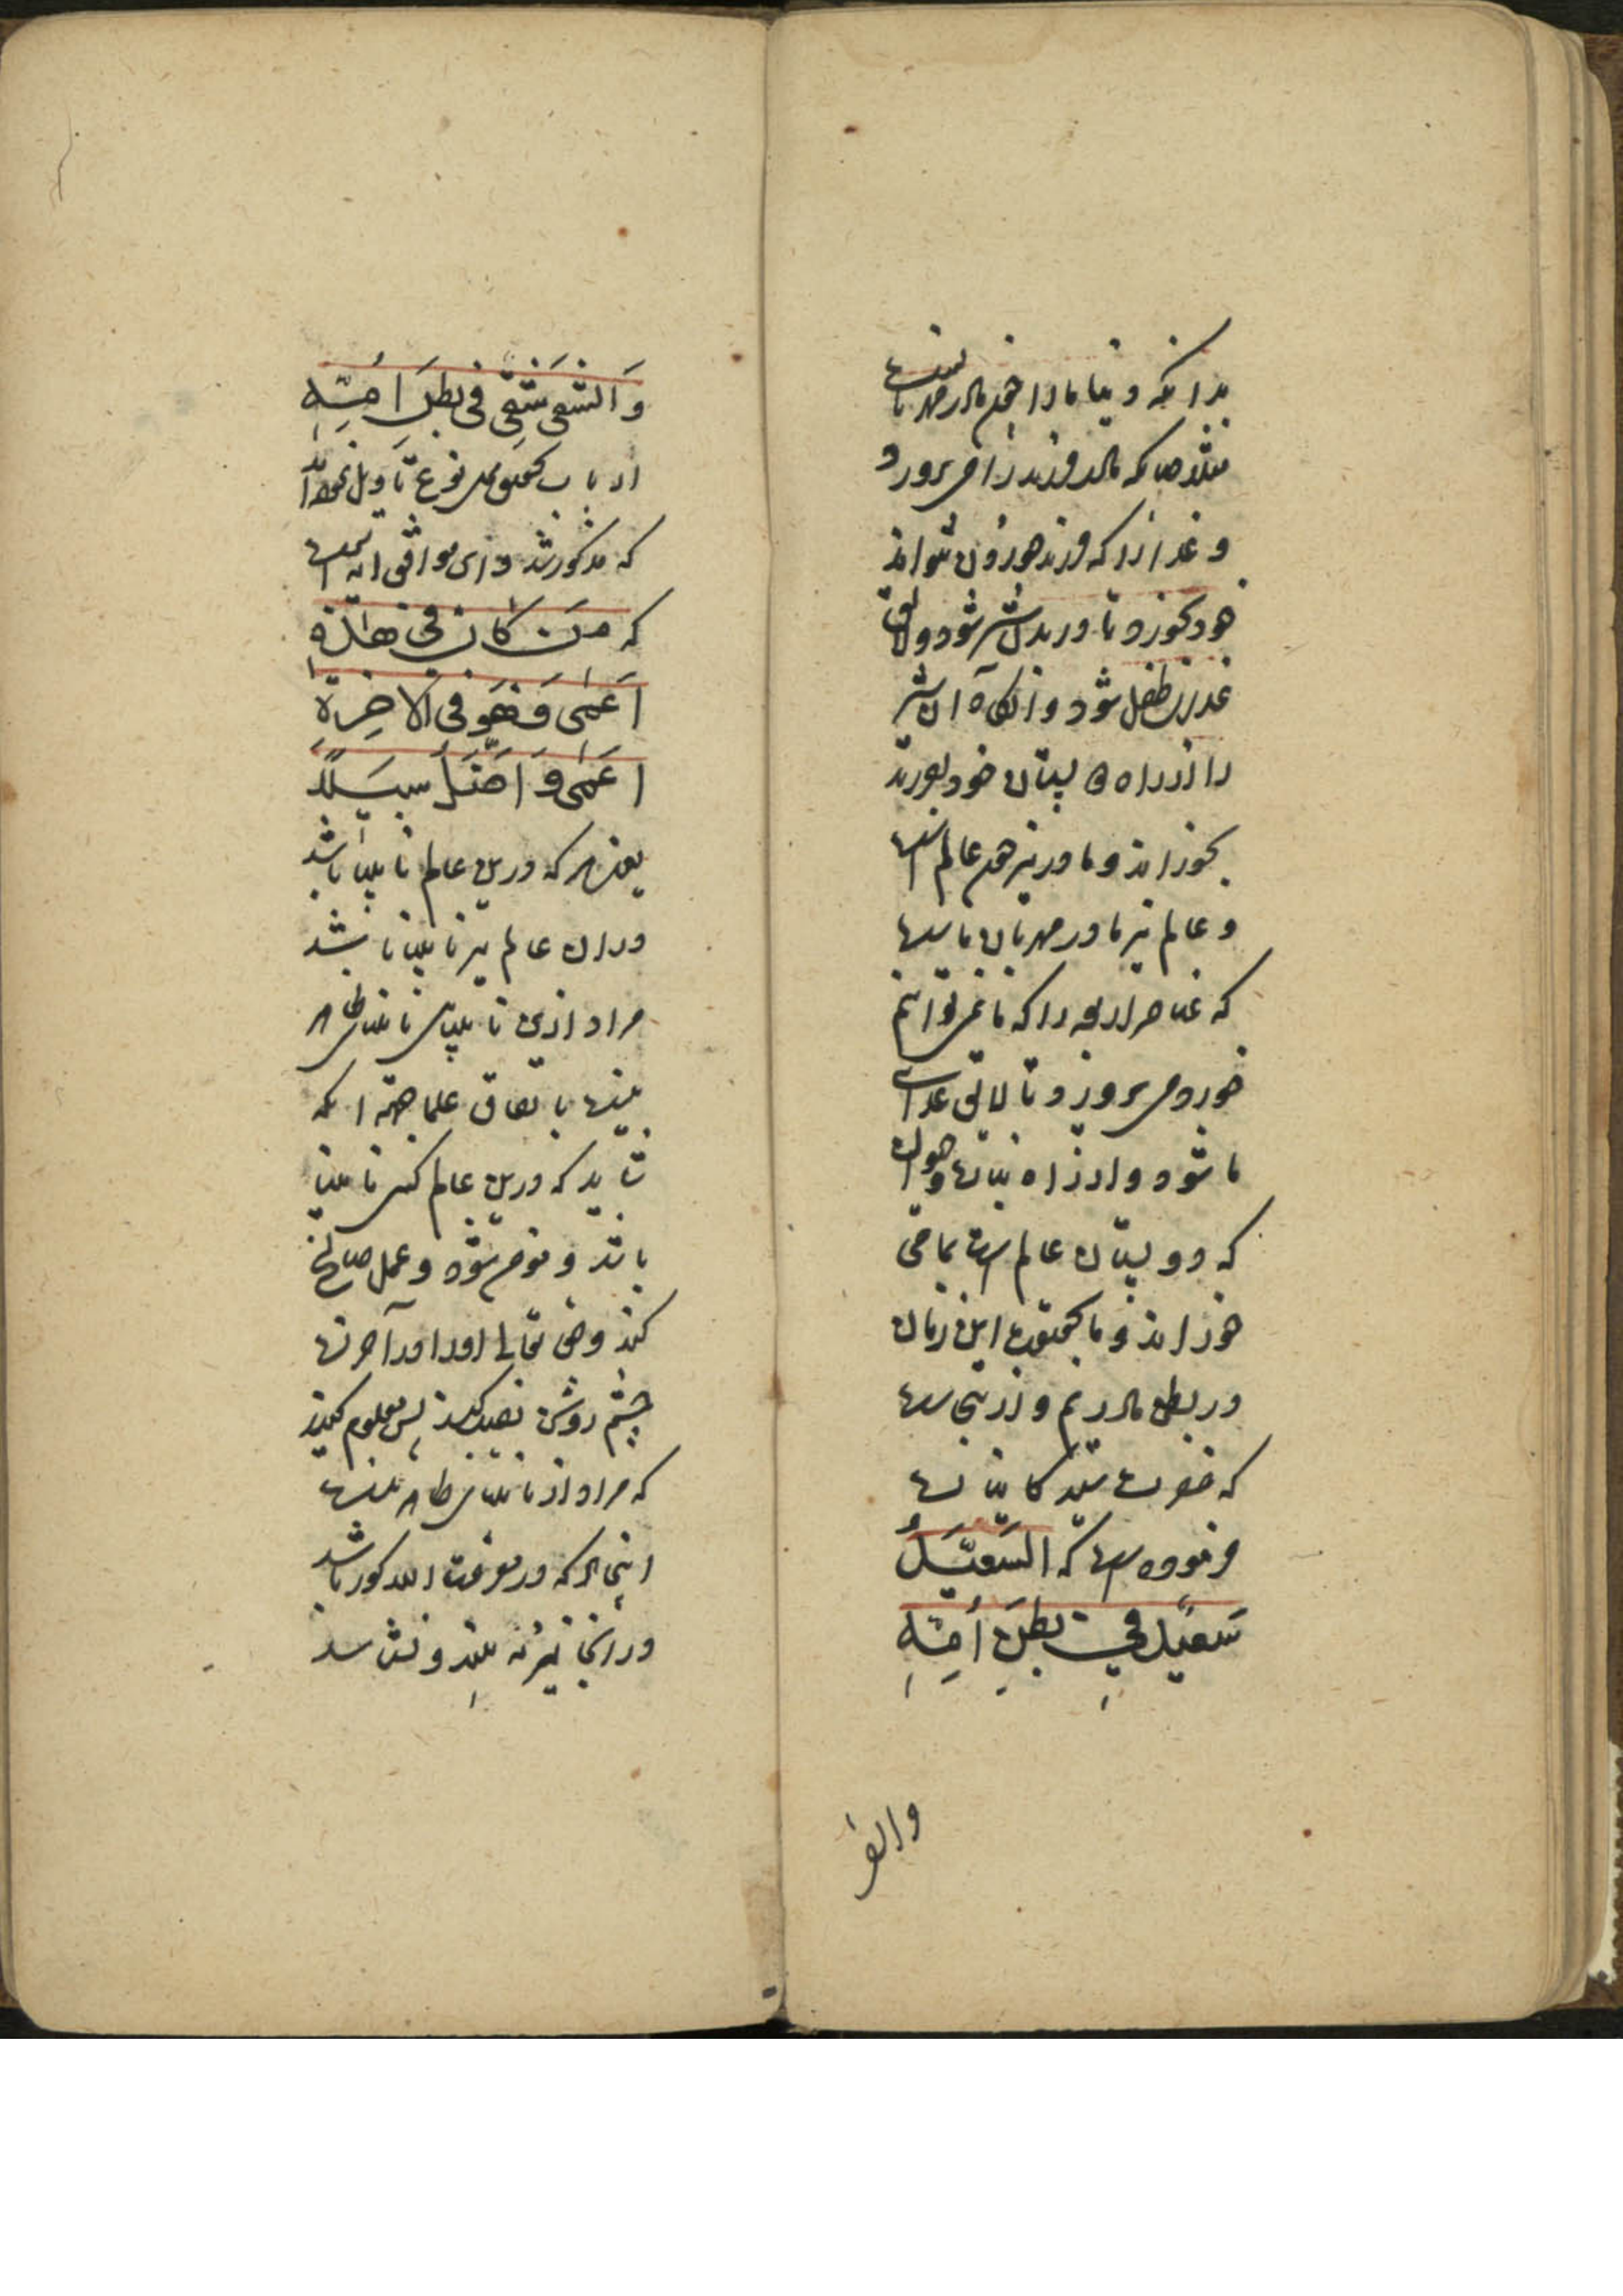 بدانکه دنیا ما را همچون مادر مهربانست
مثلا چنانکه مادر فرزند را می پرورد
و غذا را که فرزند خوردن نتواند
خود بخورد تا در بدنش شیر شود و لایق
غذای طفل شود و انکاه آن شیر
را از راه پستان خود بفرزند
بخوراند و مادر نیز هم عالم است
و عالم نیز مادر مهربان ماست
که عناصر اربعه را که ما نمی توانیم
خورد می پرورد تا لایق غذای
ما شود و از راه نبات و حیوان
که دو پستان عالم است بما می
خوراند و ما بحقیقت این زمان
در بطن مادریم و از ینجاست
که حضرت سید کاینات
فرموده است که السَعیدُ
سَعیدٌ فی بطنِ أمّهِ
والشقی
وَالشقی شَقیٌ فی بطنِ اُمّهِ
ارباب تحقیق نوع تاویل
که مذکور شد و این موافق آیه است
که مَن کان فی هذهِ
اَعمی فَهُوَ فی الاخِرَةِ
اَعمی وَ اَضَلُّ سَبیلاً
یعنی هر که درین عالم نابینا باشد
در ان عالم نیز نابینا باشد
مراد ازین نابینایی نابینایی ظاهر
نیست باتفاق علما جهة انکه
شاید که درین عالم کسی نابینا
باشد و مومن بود و عمل صالح
کند و حق تعالی او را در آخرت
چشم روشن نصیب کند پس معلوم کنید
که مراد از نابینایی ظاهر نیست
اینجا هر که در معرفت الله کور باشد
در آنجا نیز نه بیند و نشناسد